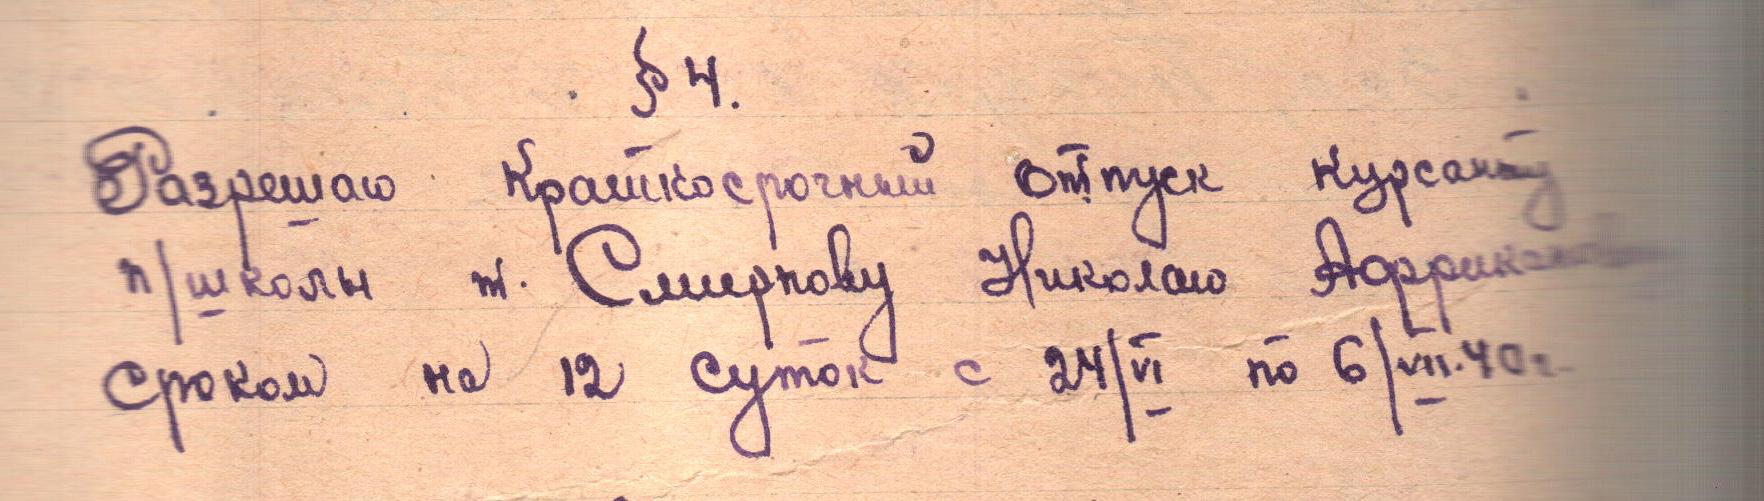 § 4.
Разрешаю краткосрочный отпуск курсанту
п/школы т. Смирнову Николаю
сроком на 12 суток с 24/VI по 6/VII.40г.